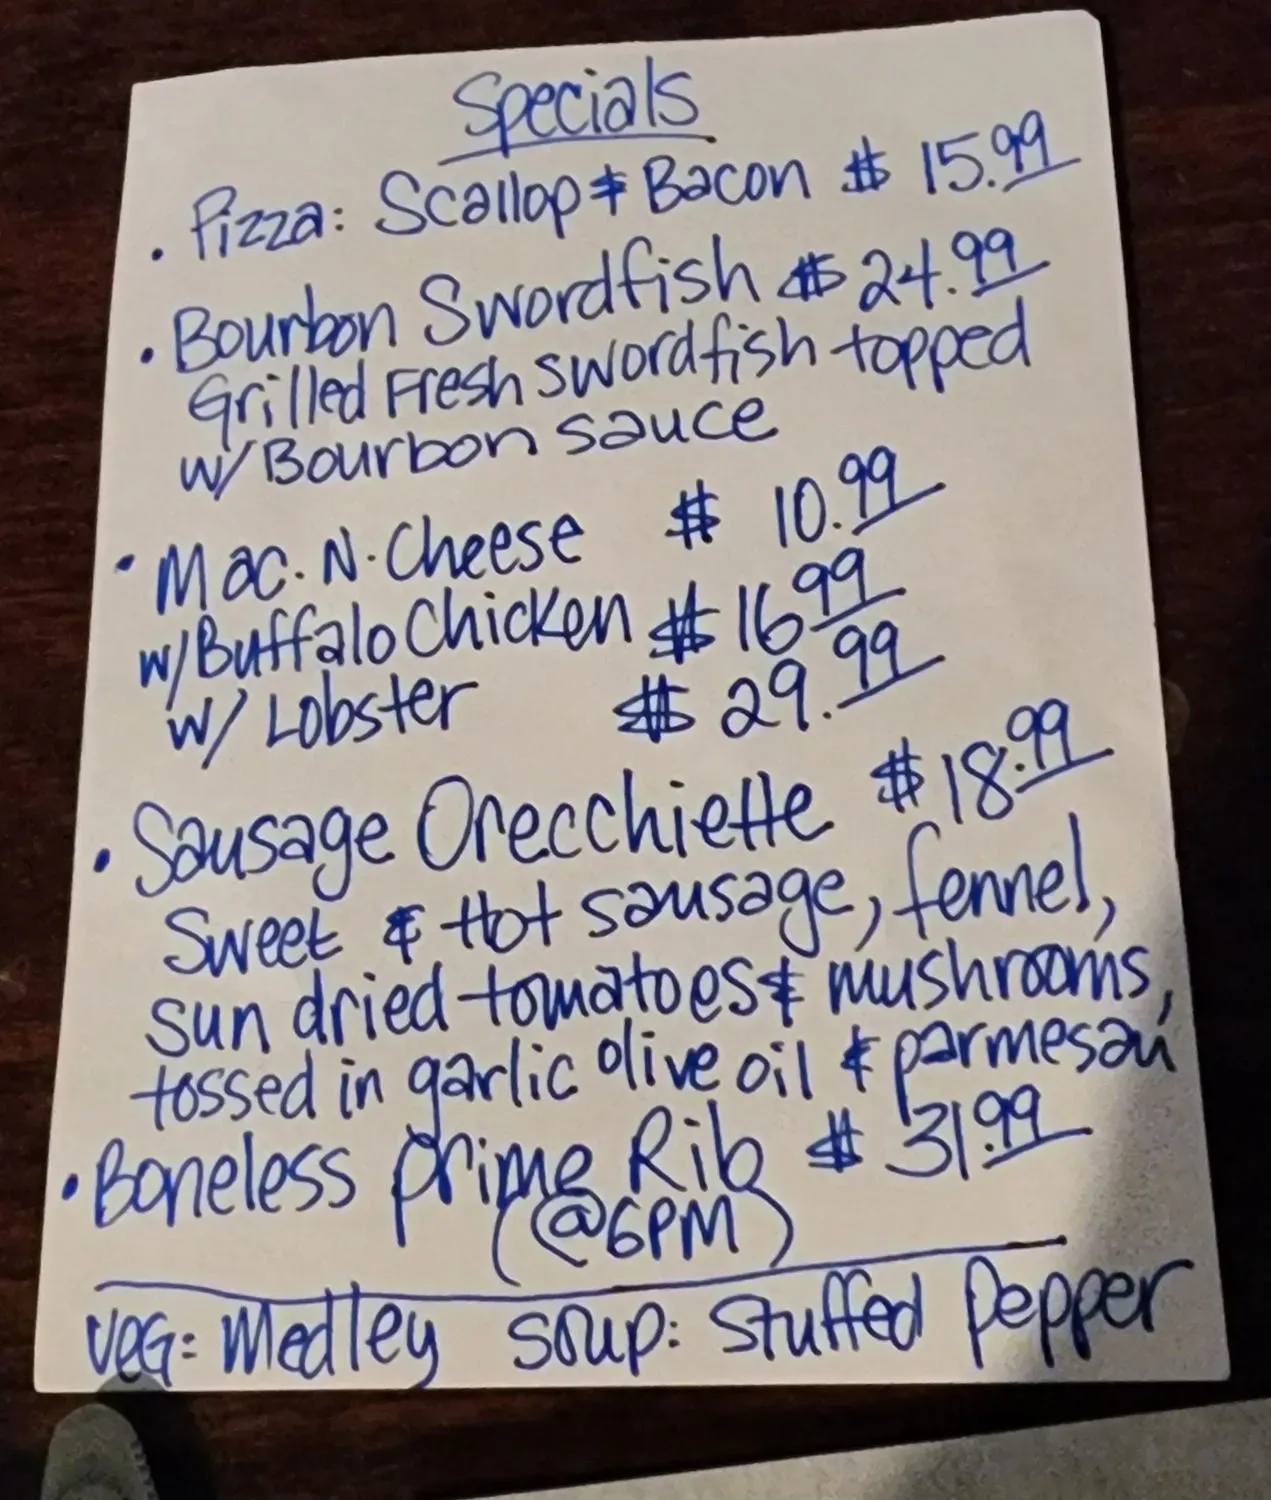 Specials
• Pizza: Scallop & Bacon $ 15.99
• Bourbon Swordfish $ 24.99
Grilled Fresh swordfish topped
w/ Bourbon sauce
• Mac. N. Cheese $ 10.99
w/ Buffalo Chicken $ 16.99
w/ Lobster $ 29.99
• Sausage Orecchiette $ 18.99
Sweet & Hot sausage, fennel,
sun dried tomatoes & mushrooms,
tossed in garlic olive oil & parmesan
• Boneless prime Rib $ 31.99
(@6PM)
VEG: Medley Soup: Stuffed Pepper